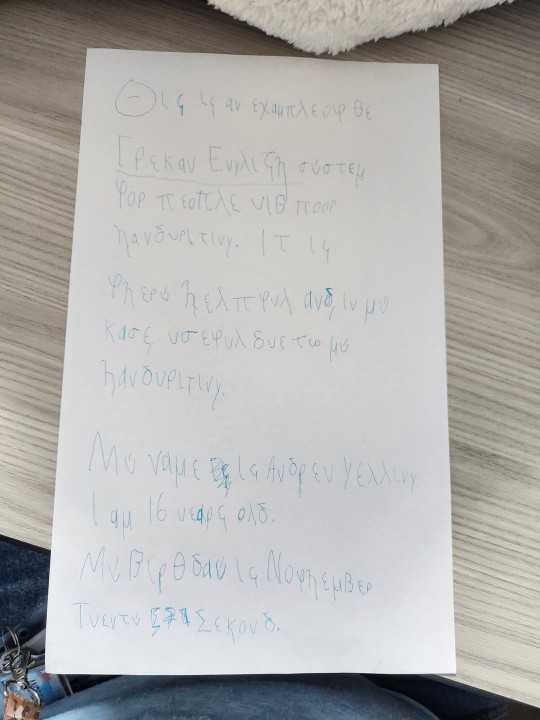 Θις ις αν εχαμπλε οφ θε
Γρεκαν Ενγλιζη σύστεμ
Φορ πεοπλε υιθ ποορ
ηανδυριτινγ. Ιτ ις
φηερύ ηελπφυλ ανδ, ιν μύ
κασε, υσεφυλ δυε τω μύ
ηανδυριτινγ.
Μύ ναμε ις Ανδρευ Υελλινγ
Ι αμ 16 υεαρς ολδ.
Μύ Βιρθδαύ ις Νοφηεμβερ
Τυεντύ Σεκονδ.